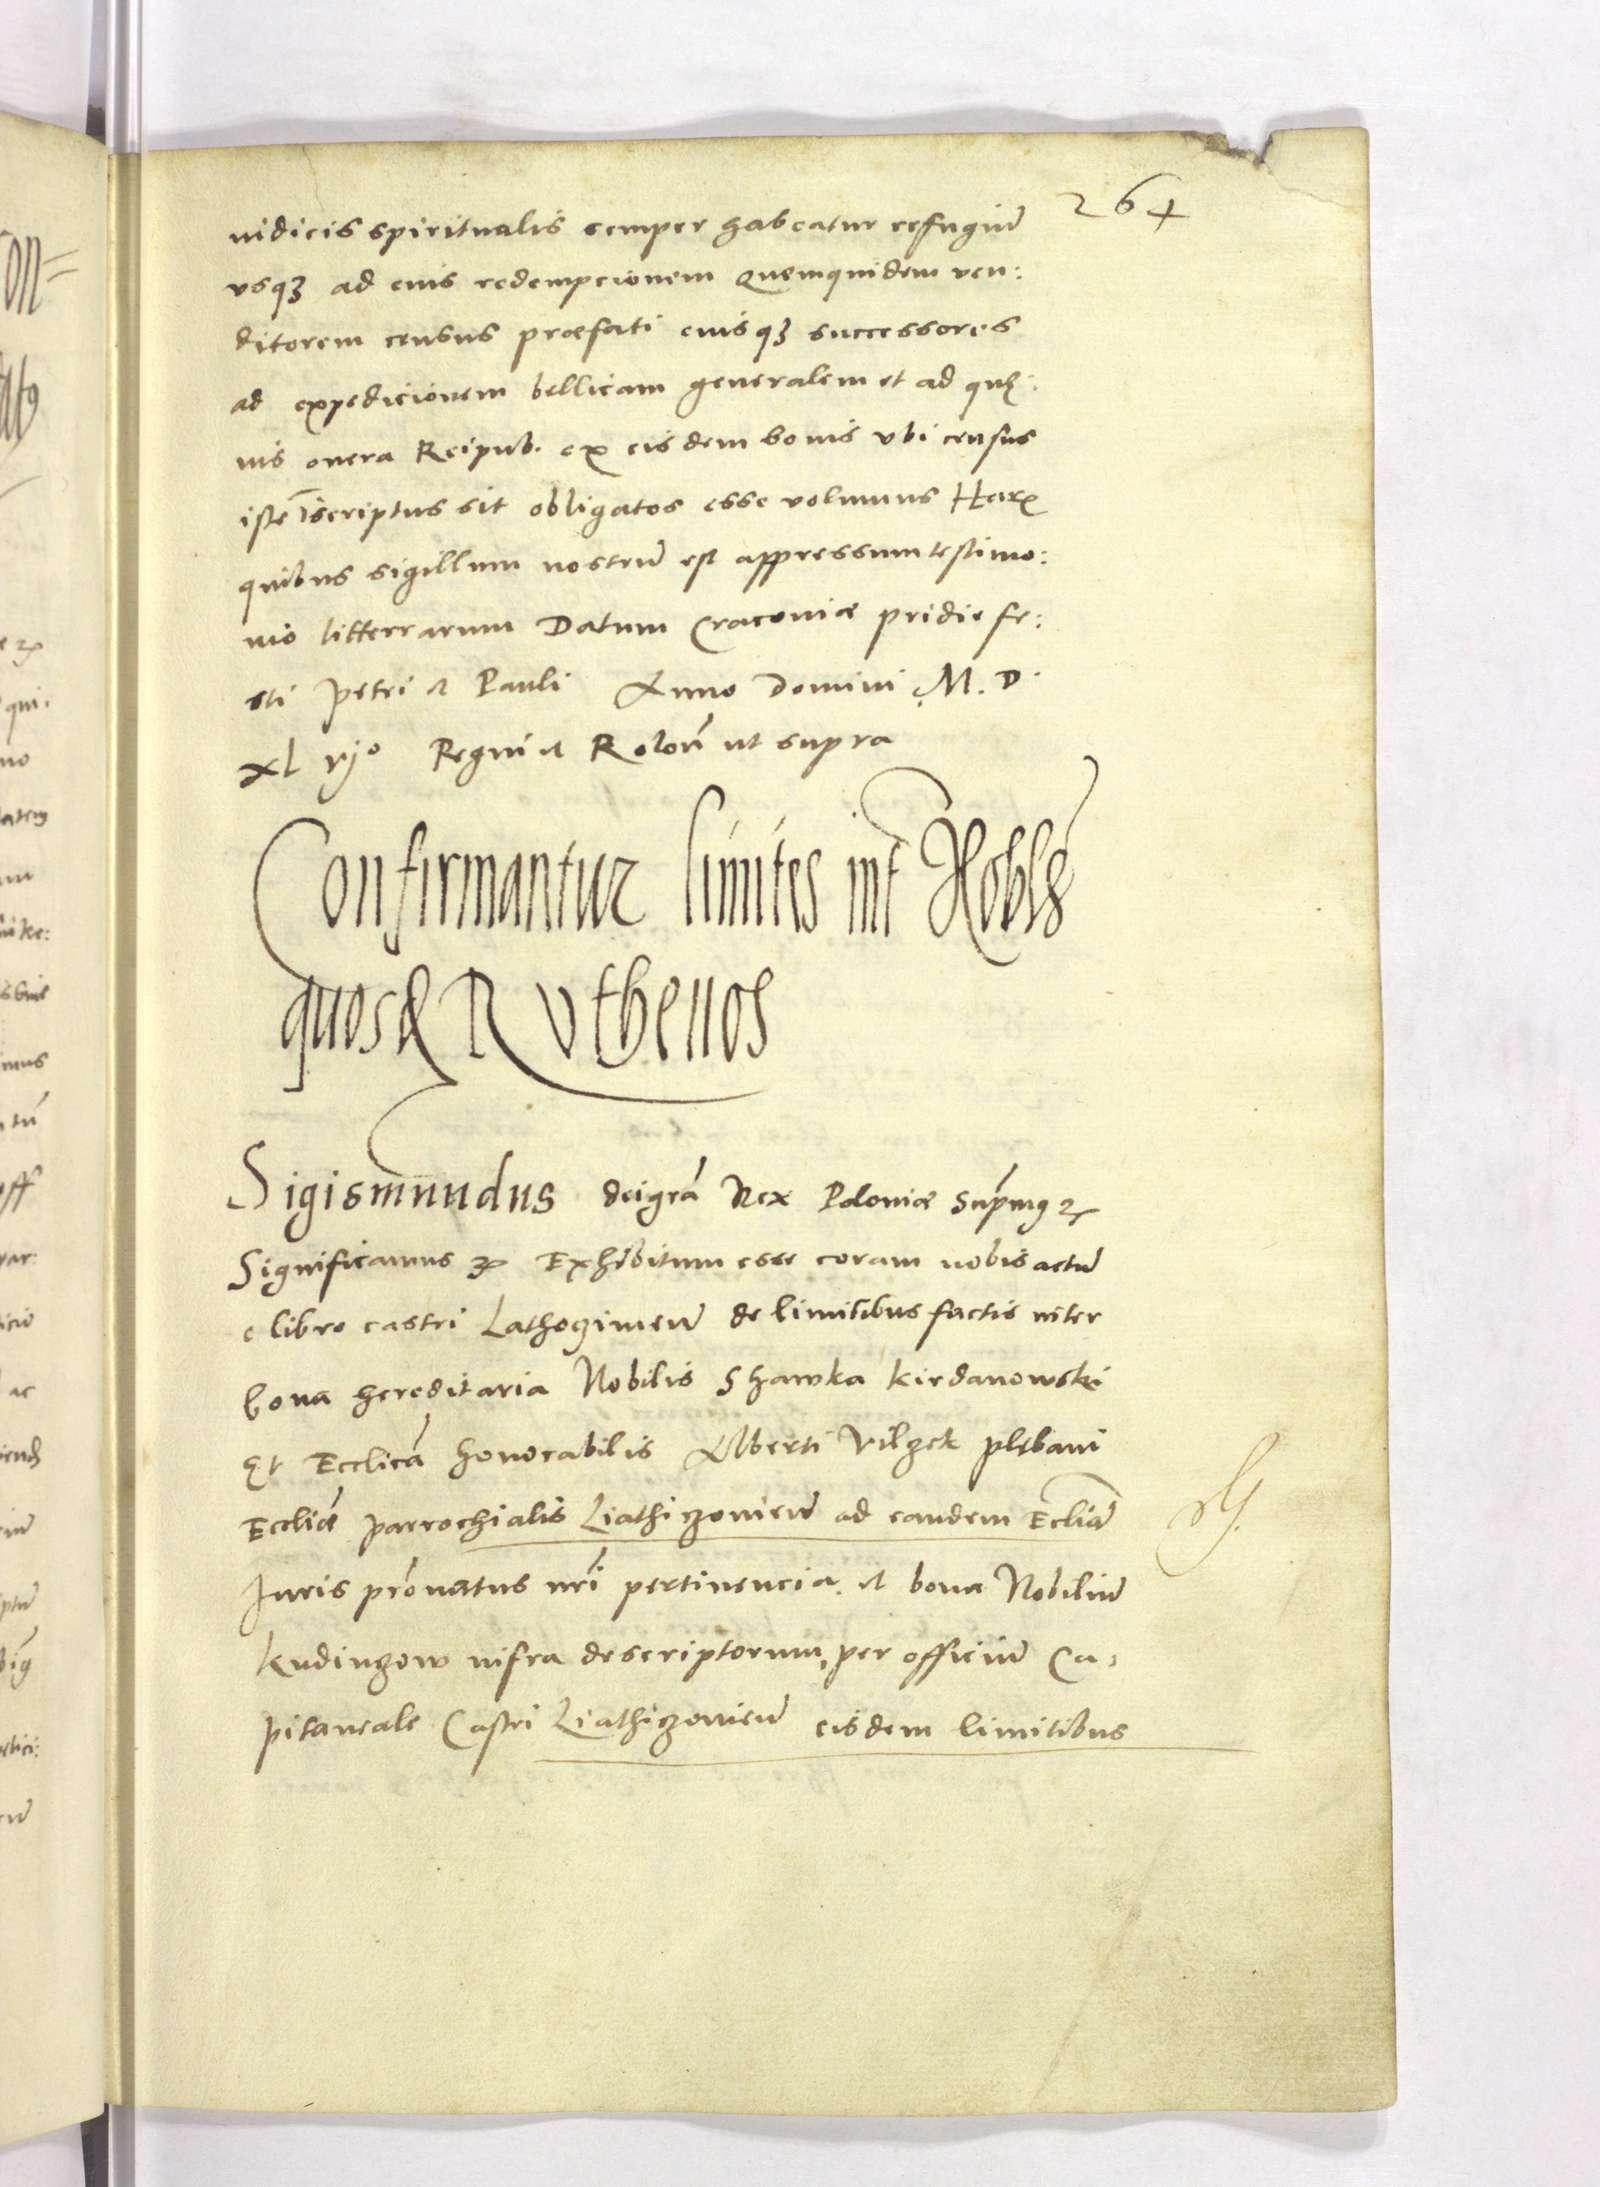 264
iudicis spiritualis semper habeatur refugiũ
usqꝫ ad eius redempcionem Quemquidem ven:
ditorem census præfati eiusqꝫ successores
ad expedicionem bellicam generalem et ad
vis onera Reipub. ex eisdem bonis ubi census
iste ĩscriptus sit obligatos esse volumus Harꝝ
quibus sigillum nostrũ est appressum testimo:
nio litterrarum Datum Cracoviæ pridie fe:
sti Petri et Pauli Anno Domini M. D.
xl vjº Regni et ut supra
Confirmantur limites int Nobles
quosdã Ruthenos
Sigismundus dei grã Rex Poloniæ
Significamus Exhibitum esse coram nobis actũ
e libro castri de limitibus factis inter
bona hereditaria Nobilis Shawka Kirdanowski
Et Ecclicã honorabilis Alberti Vilgek plebani
Eccliæ parrochialis Liathiczovień ad eandem Eccliã
Iuris prõnatus nrĩ pertinencia et bona Nobiliũ
Kudinzow infra descriptorum, per officiũ Ca,
pitaneale Castri Liathiczovień eisdem limitibus